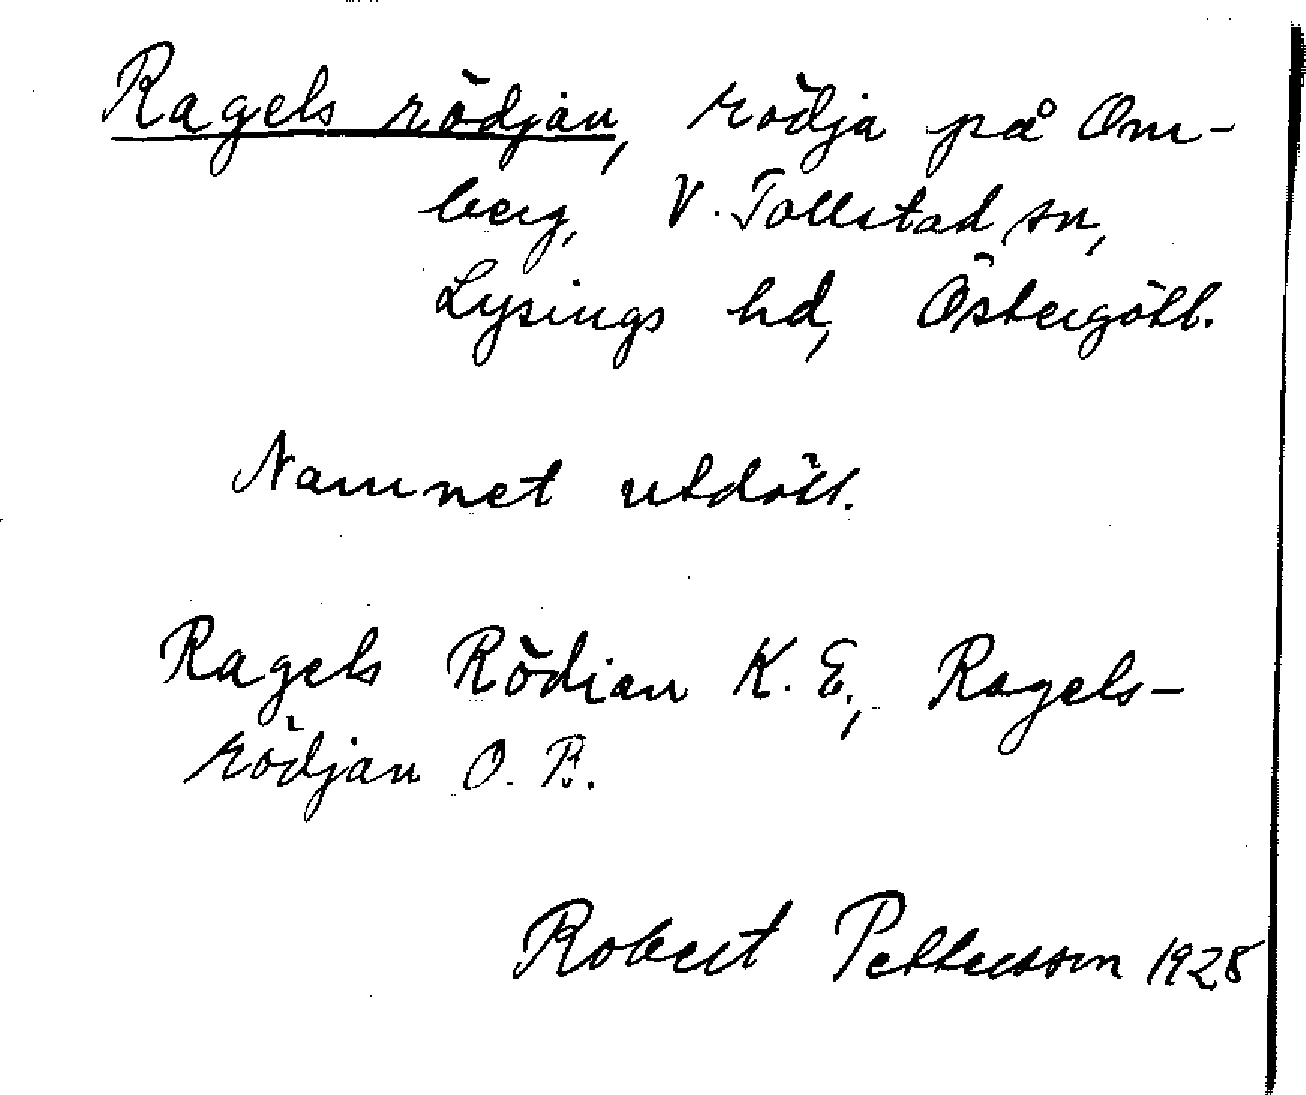 Ragels rödjan, rödja på Om-
berg, V. Tollstad sn,
Lysings hd, Östergötl.
Namnet utdött.
Ragels Rödian K. E., Ragels-
rödjan O. P.
Robert Pettersson 1928